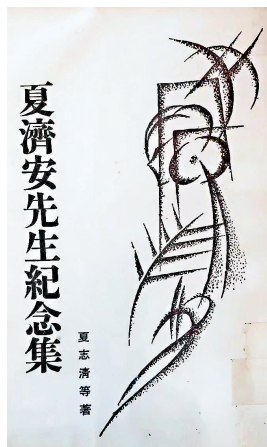 夏濟安先生紀念集
夏志清等著